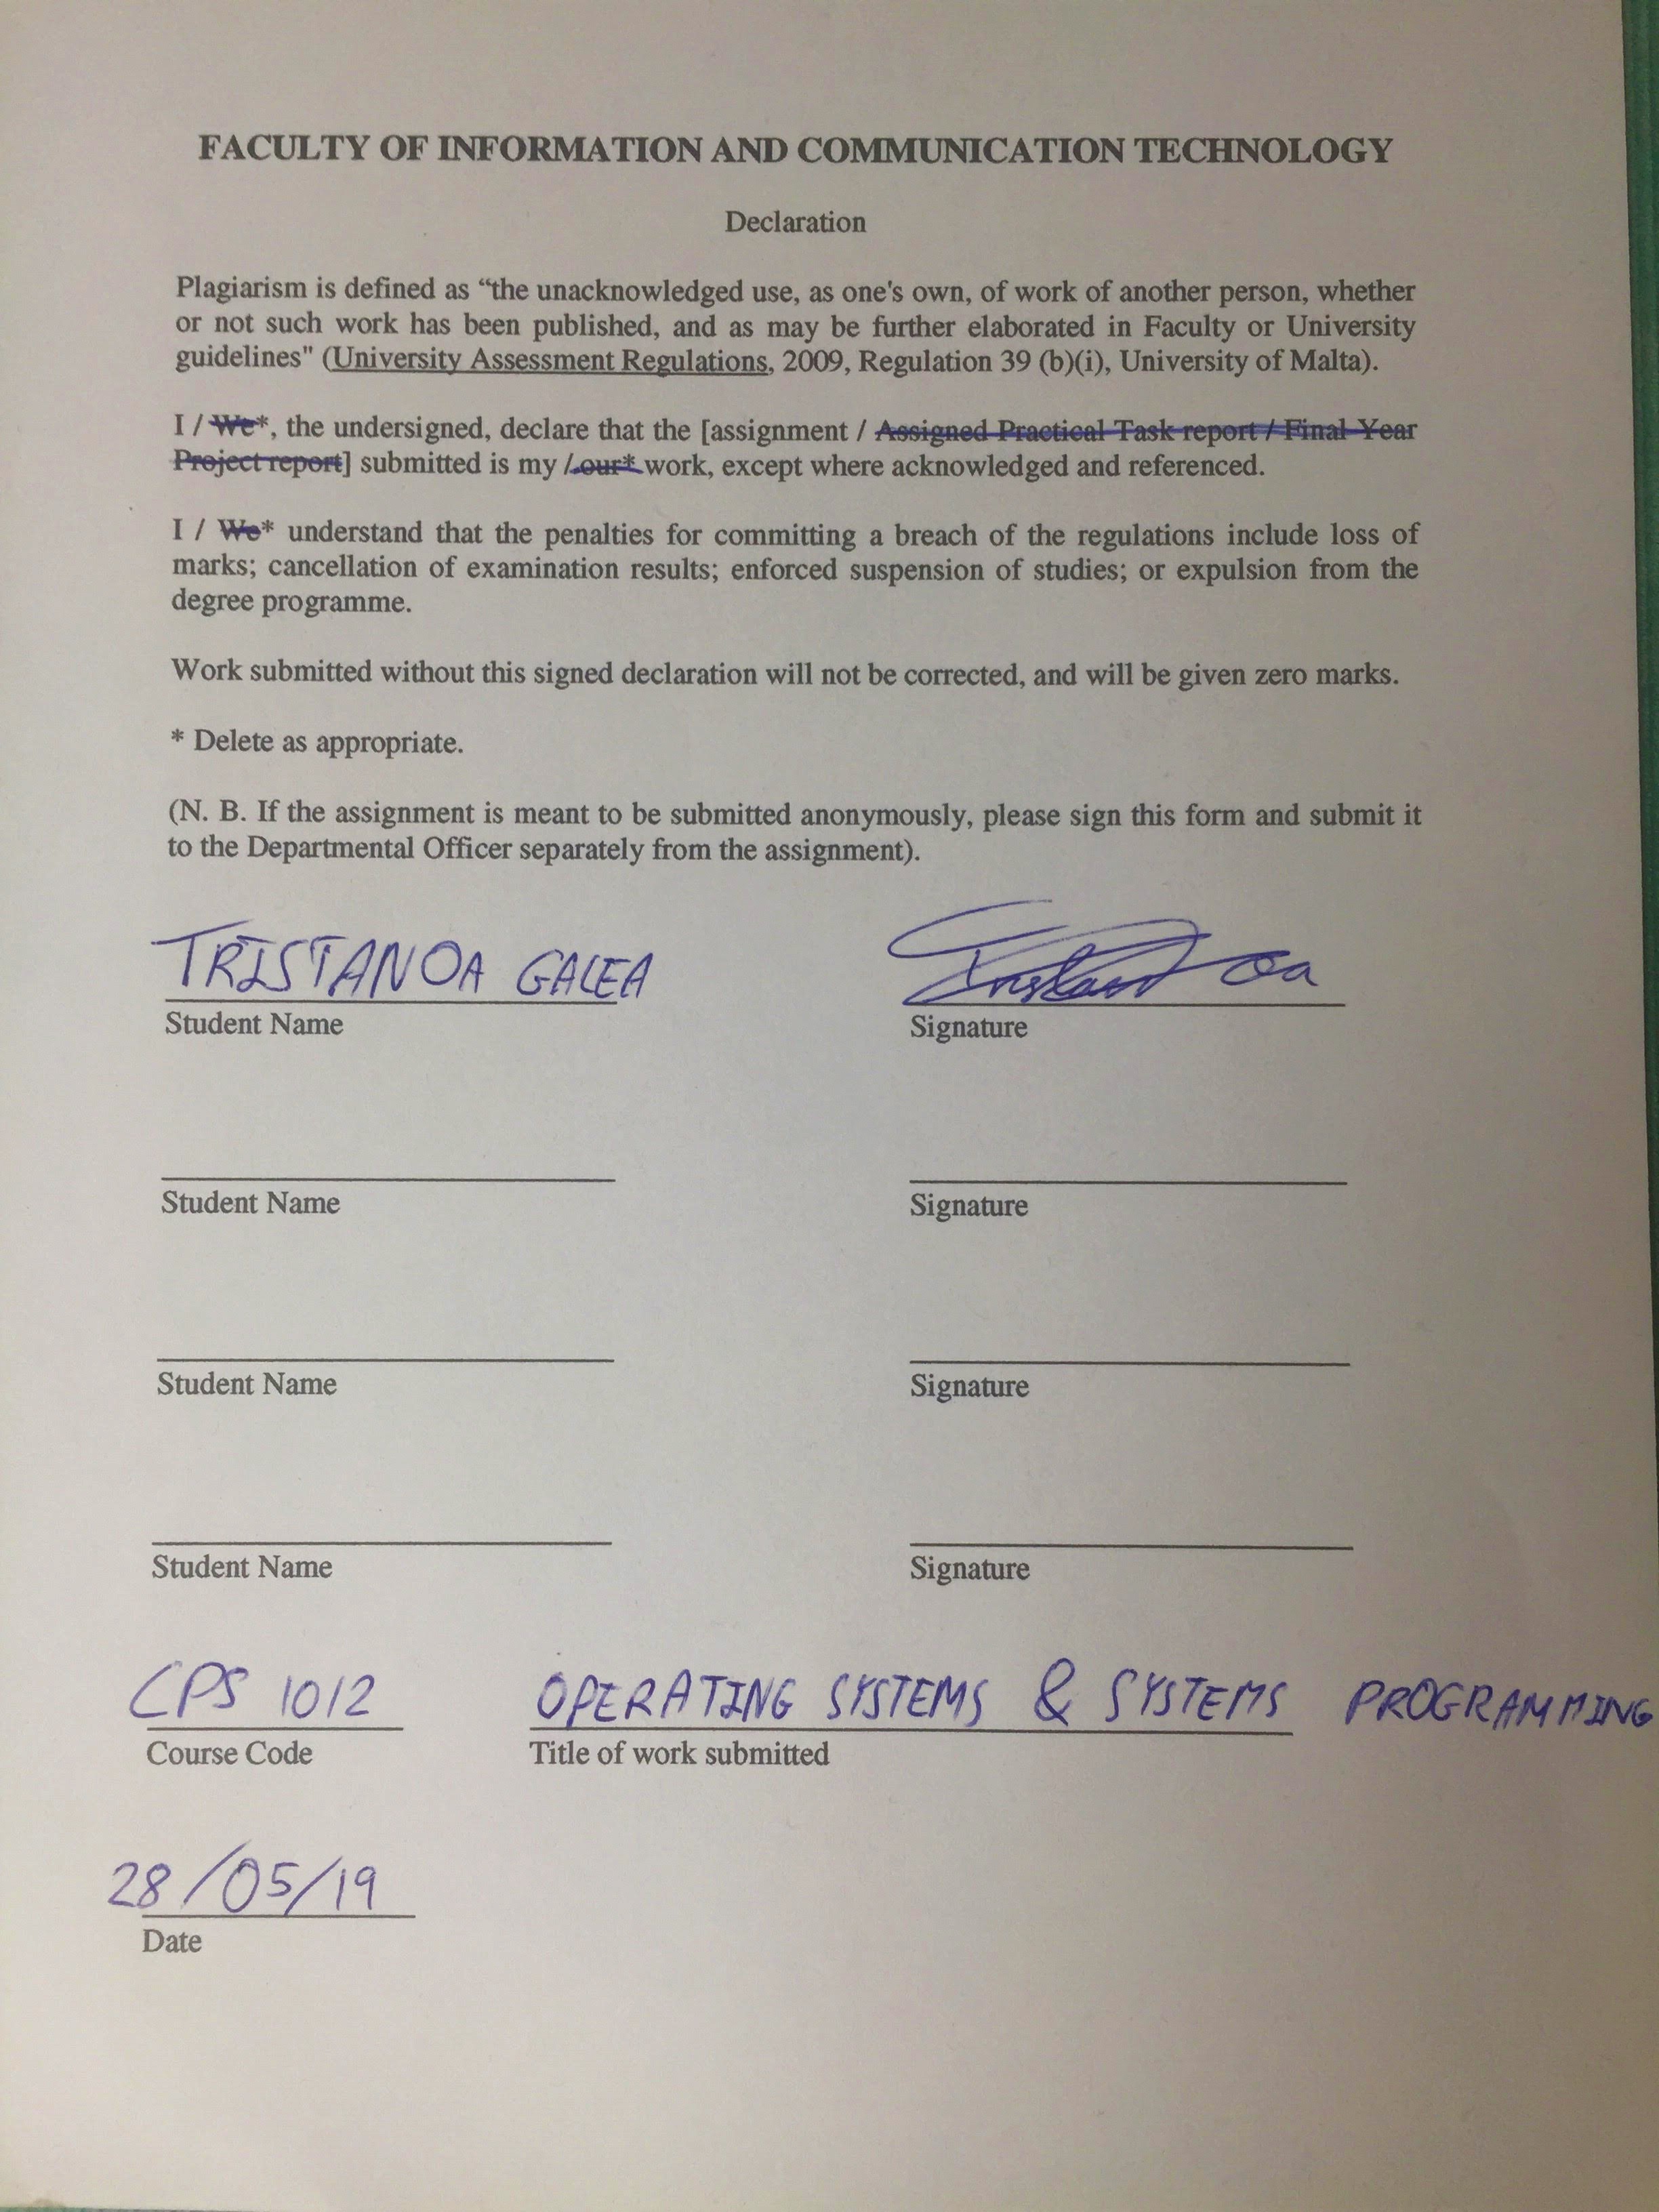 FACULTY OF INFORMATION AND COMMUNICATION TECHNOLOGY
Declaration
Plagiarism is defined as “the unacknowledged use, as one's own, of work of another person, whether
or not such work has been published, and as may be further elaborated in Faculty or University
guidelines" (University Assessment Regulations, 2009, Regulation 39 (b)(i), University of Malta).
I / We*, the undersigned, declare that the [assignment / Assigned Practical Task report / Final Year
Project report] submitted is my / our* work, except where acknowledged and referenced.
I / We* understand that the penalties for committing a breach of the regulations include loss of
marks; cancellation of examination results; enforced suspension of studies; or expulsion from the
degree programme.
Work submitted without this signed declaration will not be corrected, and will be given zero marks.
* Delete as appropriate.
(N. B. If the assignment is meant to be submitted anonymously, please sign this form and submit it
to the Departmental Officer separately from the assignment).
TRISTAN OA GALEA Tristan Oa
Student Name Signature
Student Name Signature
Student Name Signature
Student Name Signature
CPS 1012 OPERATING SYSTEMS & SYSTEMS PROGRAMMING
Course Code Title of work submitted
28/05/19
Date